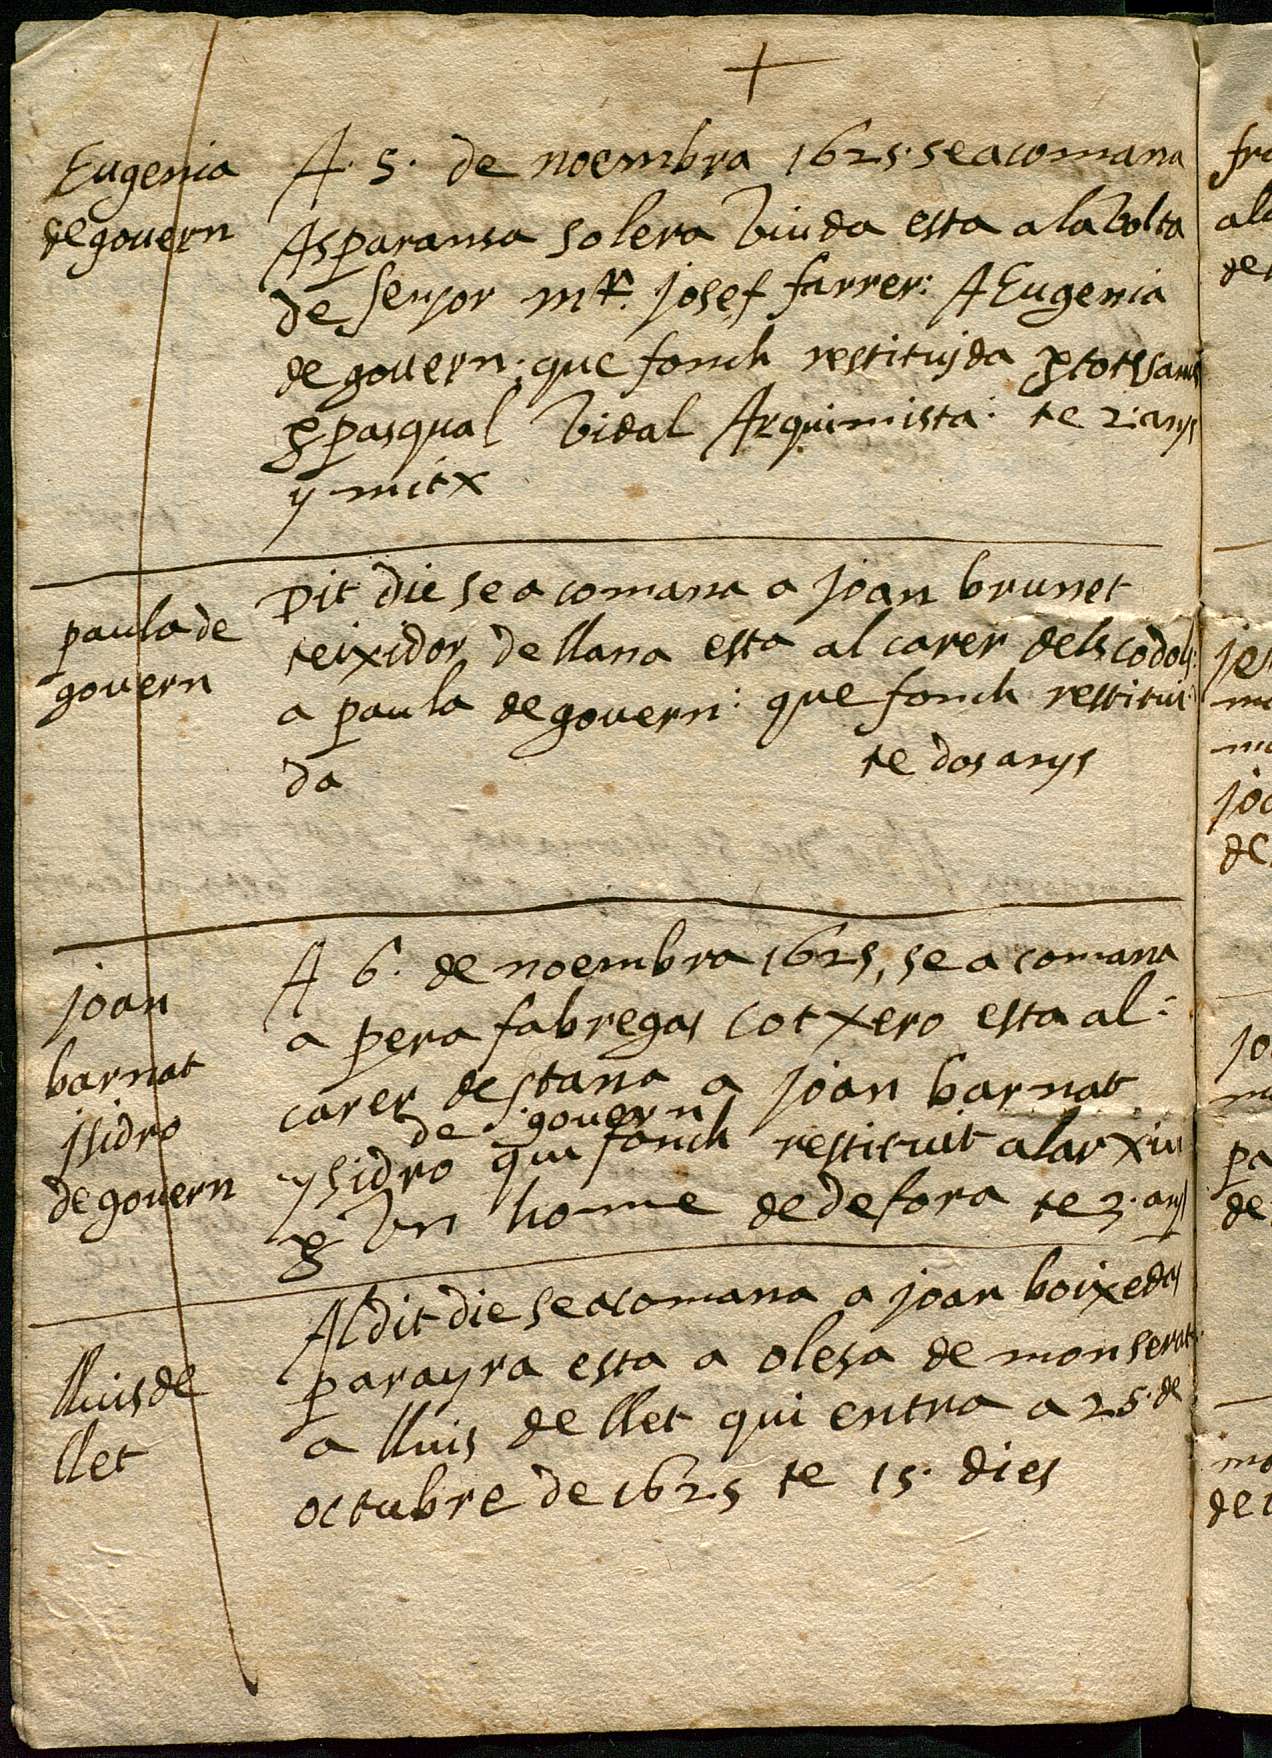 Eugenia
de govern
A 5. de noembra 1625. se acomana
Asparansa solera viuda esta a la volta
de senyor mr. josef farrer: A Eugenia
de govern: que fonch restituyda p totssants
p pasqual vidal Arquimista: te 2. anys
y mitx
paula de
govern
Dit die se acomana a joan brunet
teixidor de llana esta al carer dels codols:
a paula de govern: que fonch restitui:
da te dos anys
joan
barnat
jsidro
de govern
A 6. de noembra 1625, se acomana
a pera fabregas cotxero esta al:
carer de stana a joan barnat
de govern
y sidro qui fonch restituit a larxiu
p vn home de defora te 3. anys
lluis de
llet
Al dit die se acomana a joan boixedas
parayra esta a olesa de monserat:
a lluis de llet qui entra a 25. de
octubre de 1625 te 15. dies